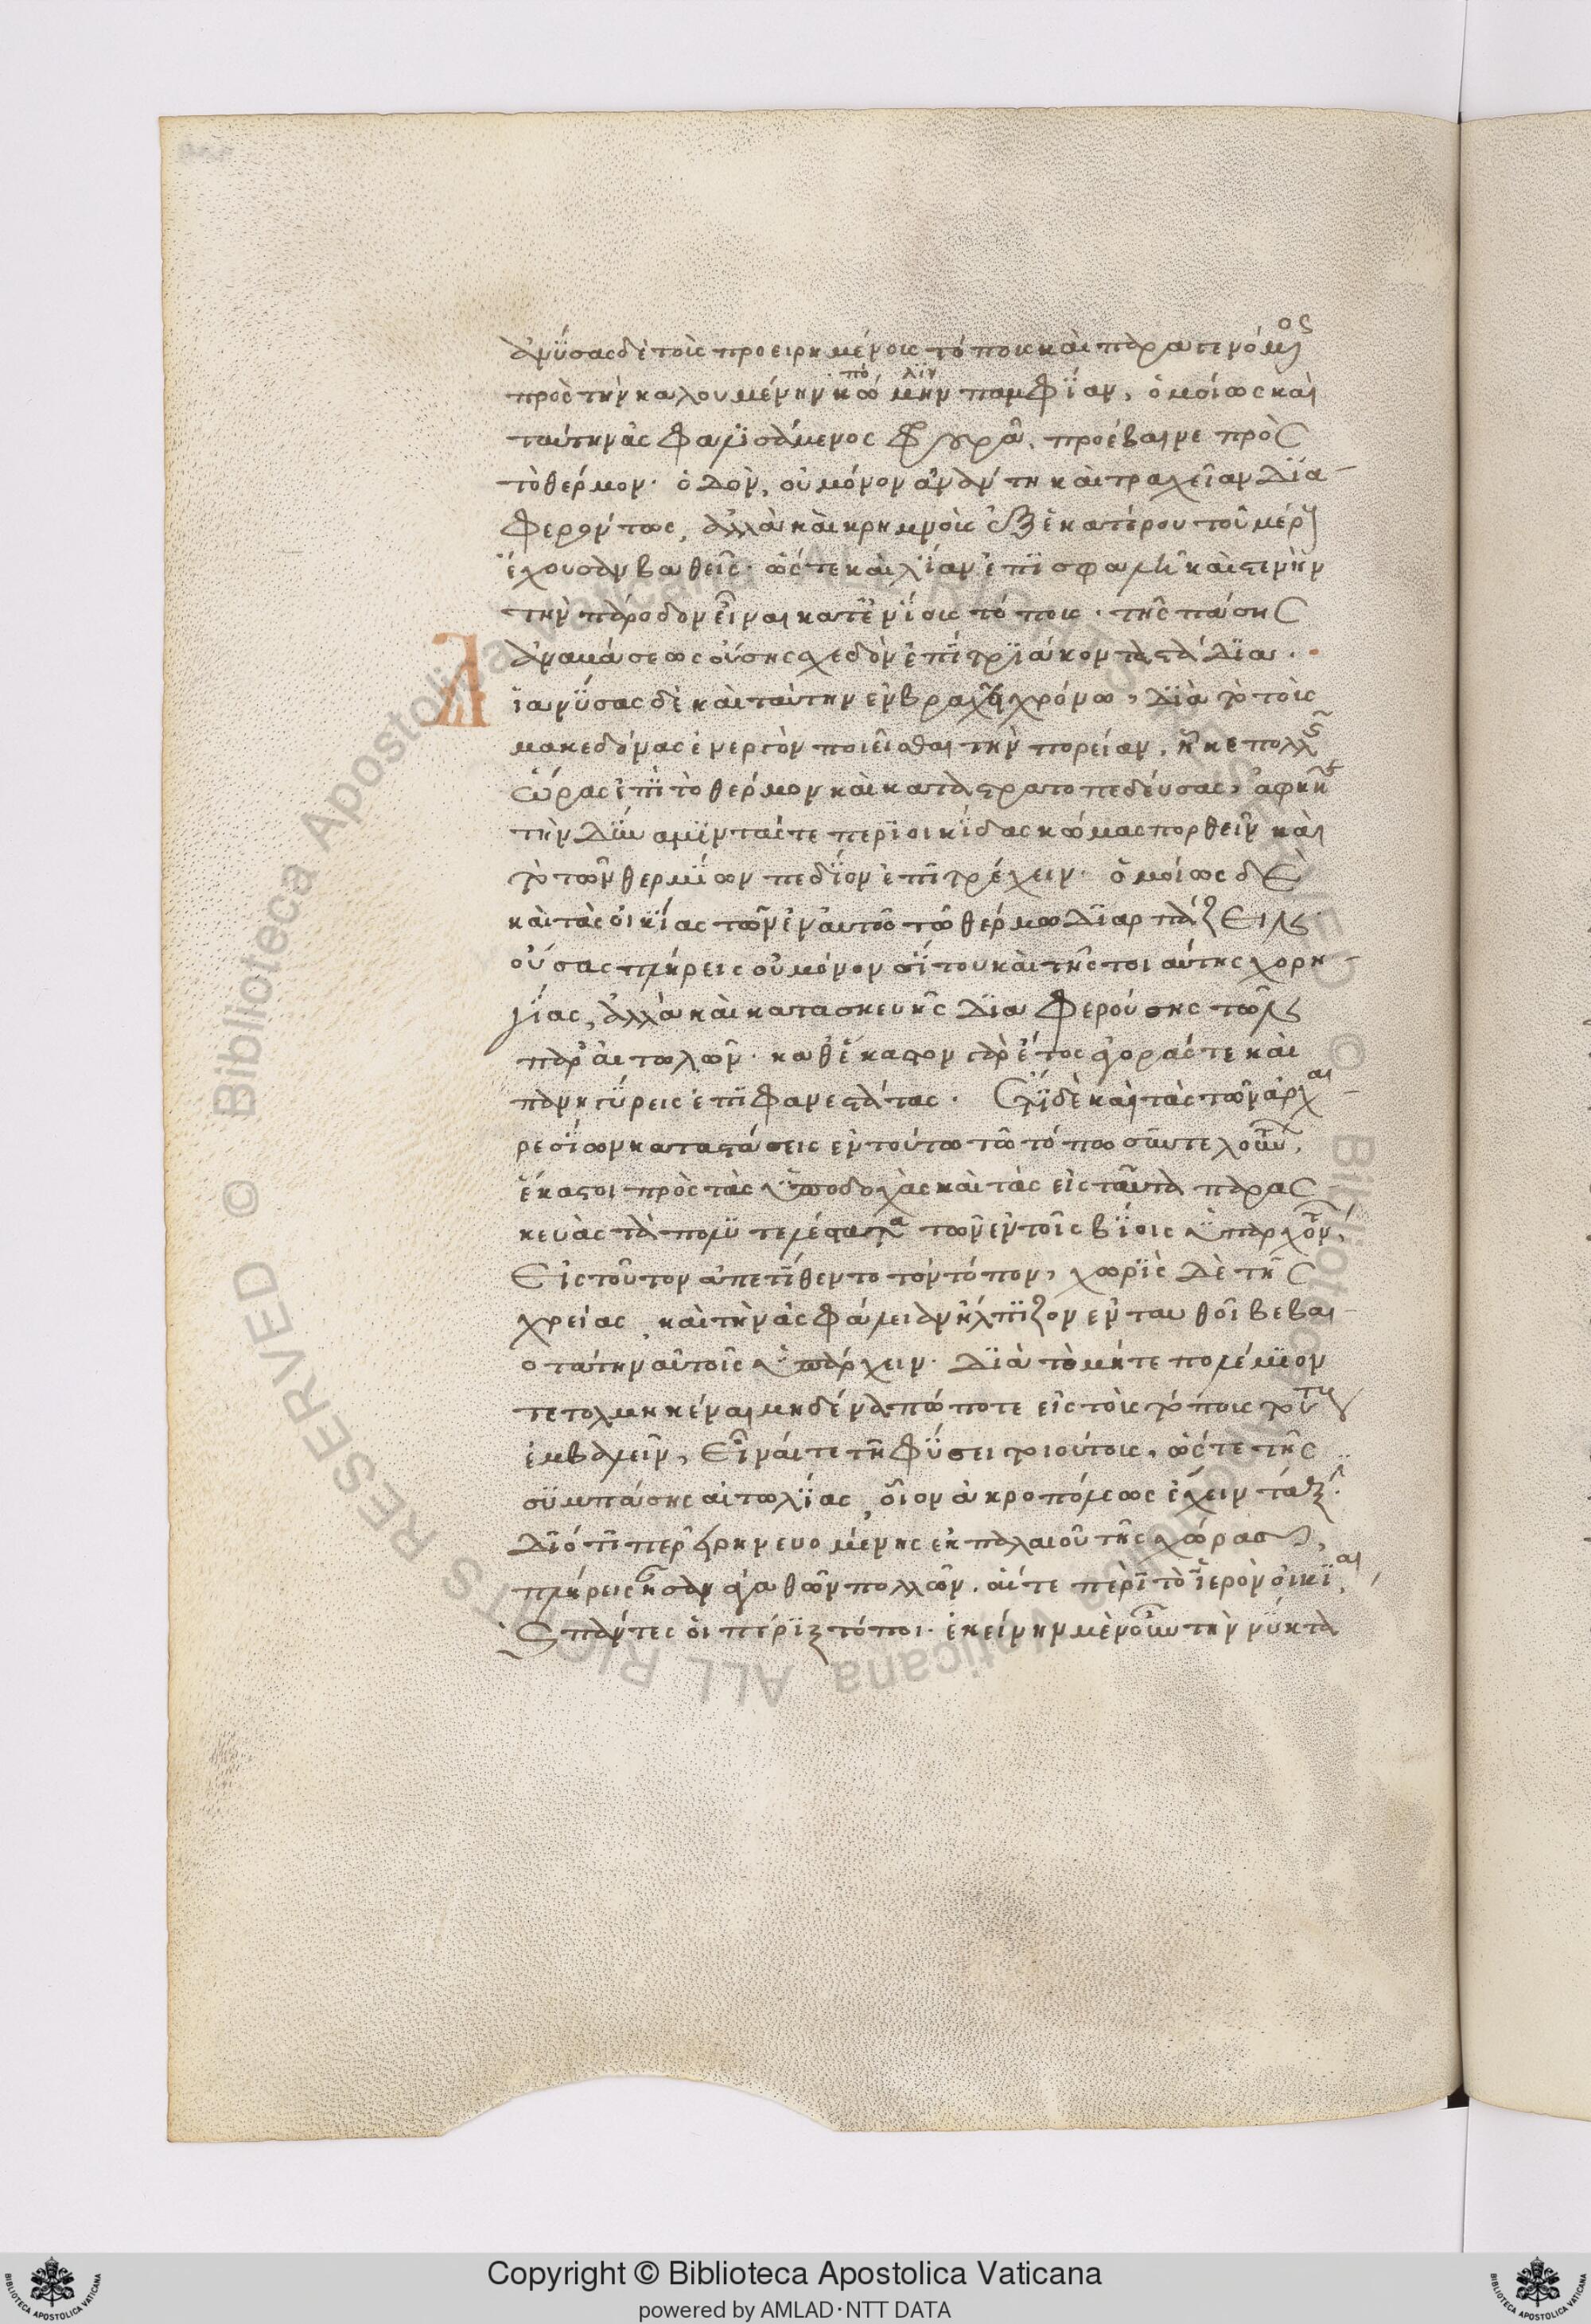 ἀνύσας δὲ τοὺς προειρημένους τόπους καὶ παραγενόμενος
πρὸς τὴν καλουμένην κώμην παμφίαν, ὁμοίως καὶ
πό λιν
ταύτην ἀσφαλισάμενος φρουρᾶ, προέβαινε πρὸς
τὸ θέρμον· ὁδὸν, οὐ μόνον ἀνάντη καὶ τραχεῖαν δια
φερόντως, ἀλλὰ καὶ κρημνοὺς ἐξ ἑκατέρου τοῦ μέρους
ἔχουσαν βαθεῖς· ὥστε καὶ λίαν ἐπισφαλῆ καὶ στενὴν
τὴν πάροδον εἶναι κατ' ἐνίους τόπους· τῆς πάσης
ἀναβάσεως οὔσης σχεδὸν ἐπὶ τριάκοντα στάδια.
Διανύσας δὲ καὶ ταύτην ἐν βραχεῖ χρόνω, διὰ τὸ τοὺς
μακεδόνας ἐνεργὸν ποιεῖσθαι τὴν πορείαν, ἧκε πολλῆς
ὥρας ἐπὶ τὸ θέρμον καὶ καταστρατοπεδεύσας, ἀφῆκε
τὴν δύναμιν τάς τε περιοικίδας κώμας πορθεῖν καὶ
τὸ τῶν θερμίων πεδίον ἐπιτρέχειν· ὁμοίως δὲ
καὶ τὰς οἰκίας τὰς ἐν αὐτῶ τῶ θέρμω διαρπάζειν·
οὔσας πλήρεις οὐ μόνον σίτου καὶ τῆς τοιαύτης χορη
γίας, ἀλλὰ καὶ κατασκευῆς διαφερούσης τῶν
παρ' αἰτωλῶν· καθ' ἕκαστον γὰρ ἔτος ἀγοράς τε καὶ
πανηγύρεις ἐπιφανεστάτας. ἔτι δὲ καὶ τὰς τῶν ἀρχαι
ρεσίων καταστάσεις ἐν τούτω τῶ τόπω συντελούντων,
ἕκαστοι πρὸς τὰς ὑποδοχὰς καὶ τὰς εἰς ταῦτα παρας
κευὰς τὰ πολυτελέστατα τῶν ἐν τοῖς βίοις ὑπαρχόντων,
εἰς τοῦτον ἀπετίθεντο τὸν τόπον, χωρὶς δὲ τῆς
χρείας, καὶ τὴν ἀσφάλειαν ἤλπιζον ἐνταυθοῖ βεβαι
οτάτην αὐτοῖς ὑπάρχειν· διὰ τὸ μήτε πολέμιον
τετολμηκέναι μηδένα πώποτε εἰς τοὺς τόπους τούτους
ἐμβαλεῖν, εἶναί τε τῆ φύσει τοιούτους, ὥστε τῆς
συμπάσης αἰτωλίας, οἷον ἀκροπόλεως ἔχειν τάξιν.
διόπερ εἰρηνευομένης ἐκ παλαιοῦ τῆς χώρας,
πλήρεις ἦσαν ἀγαθῶν πολλῶν, αἵ τε περὶ τὸ ἱερὸν οἰκίαι,
καὶ πάντες οἱ πέριξ τόποι· ἐκείνην μὲν οὖν τὴν νύκτα